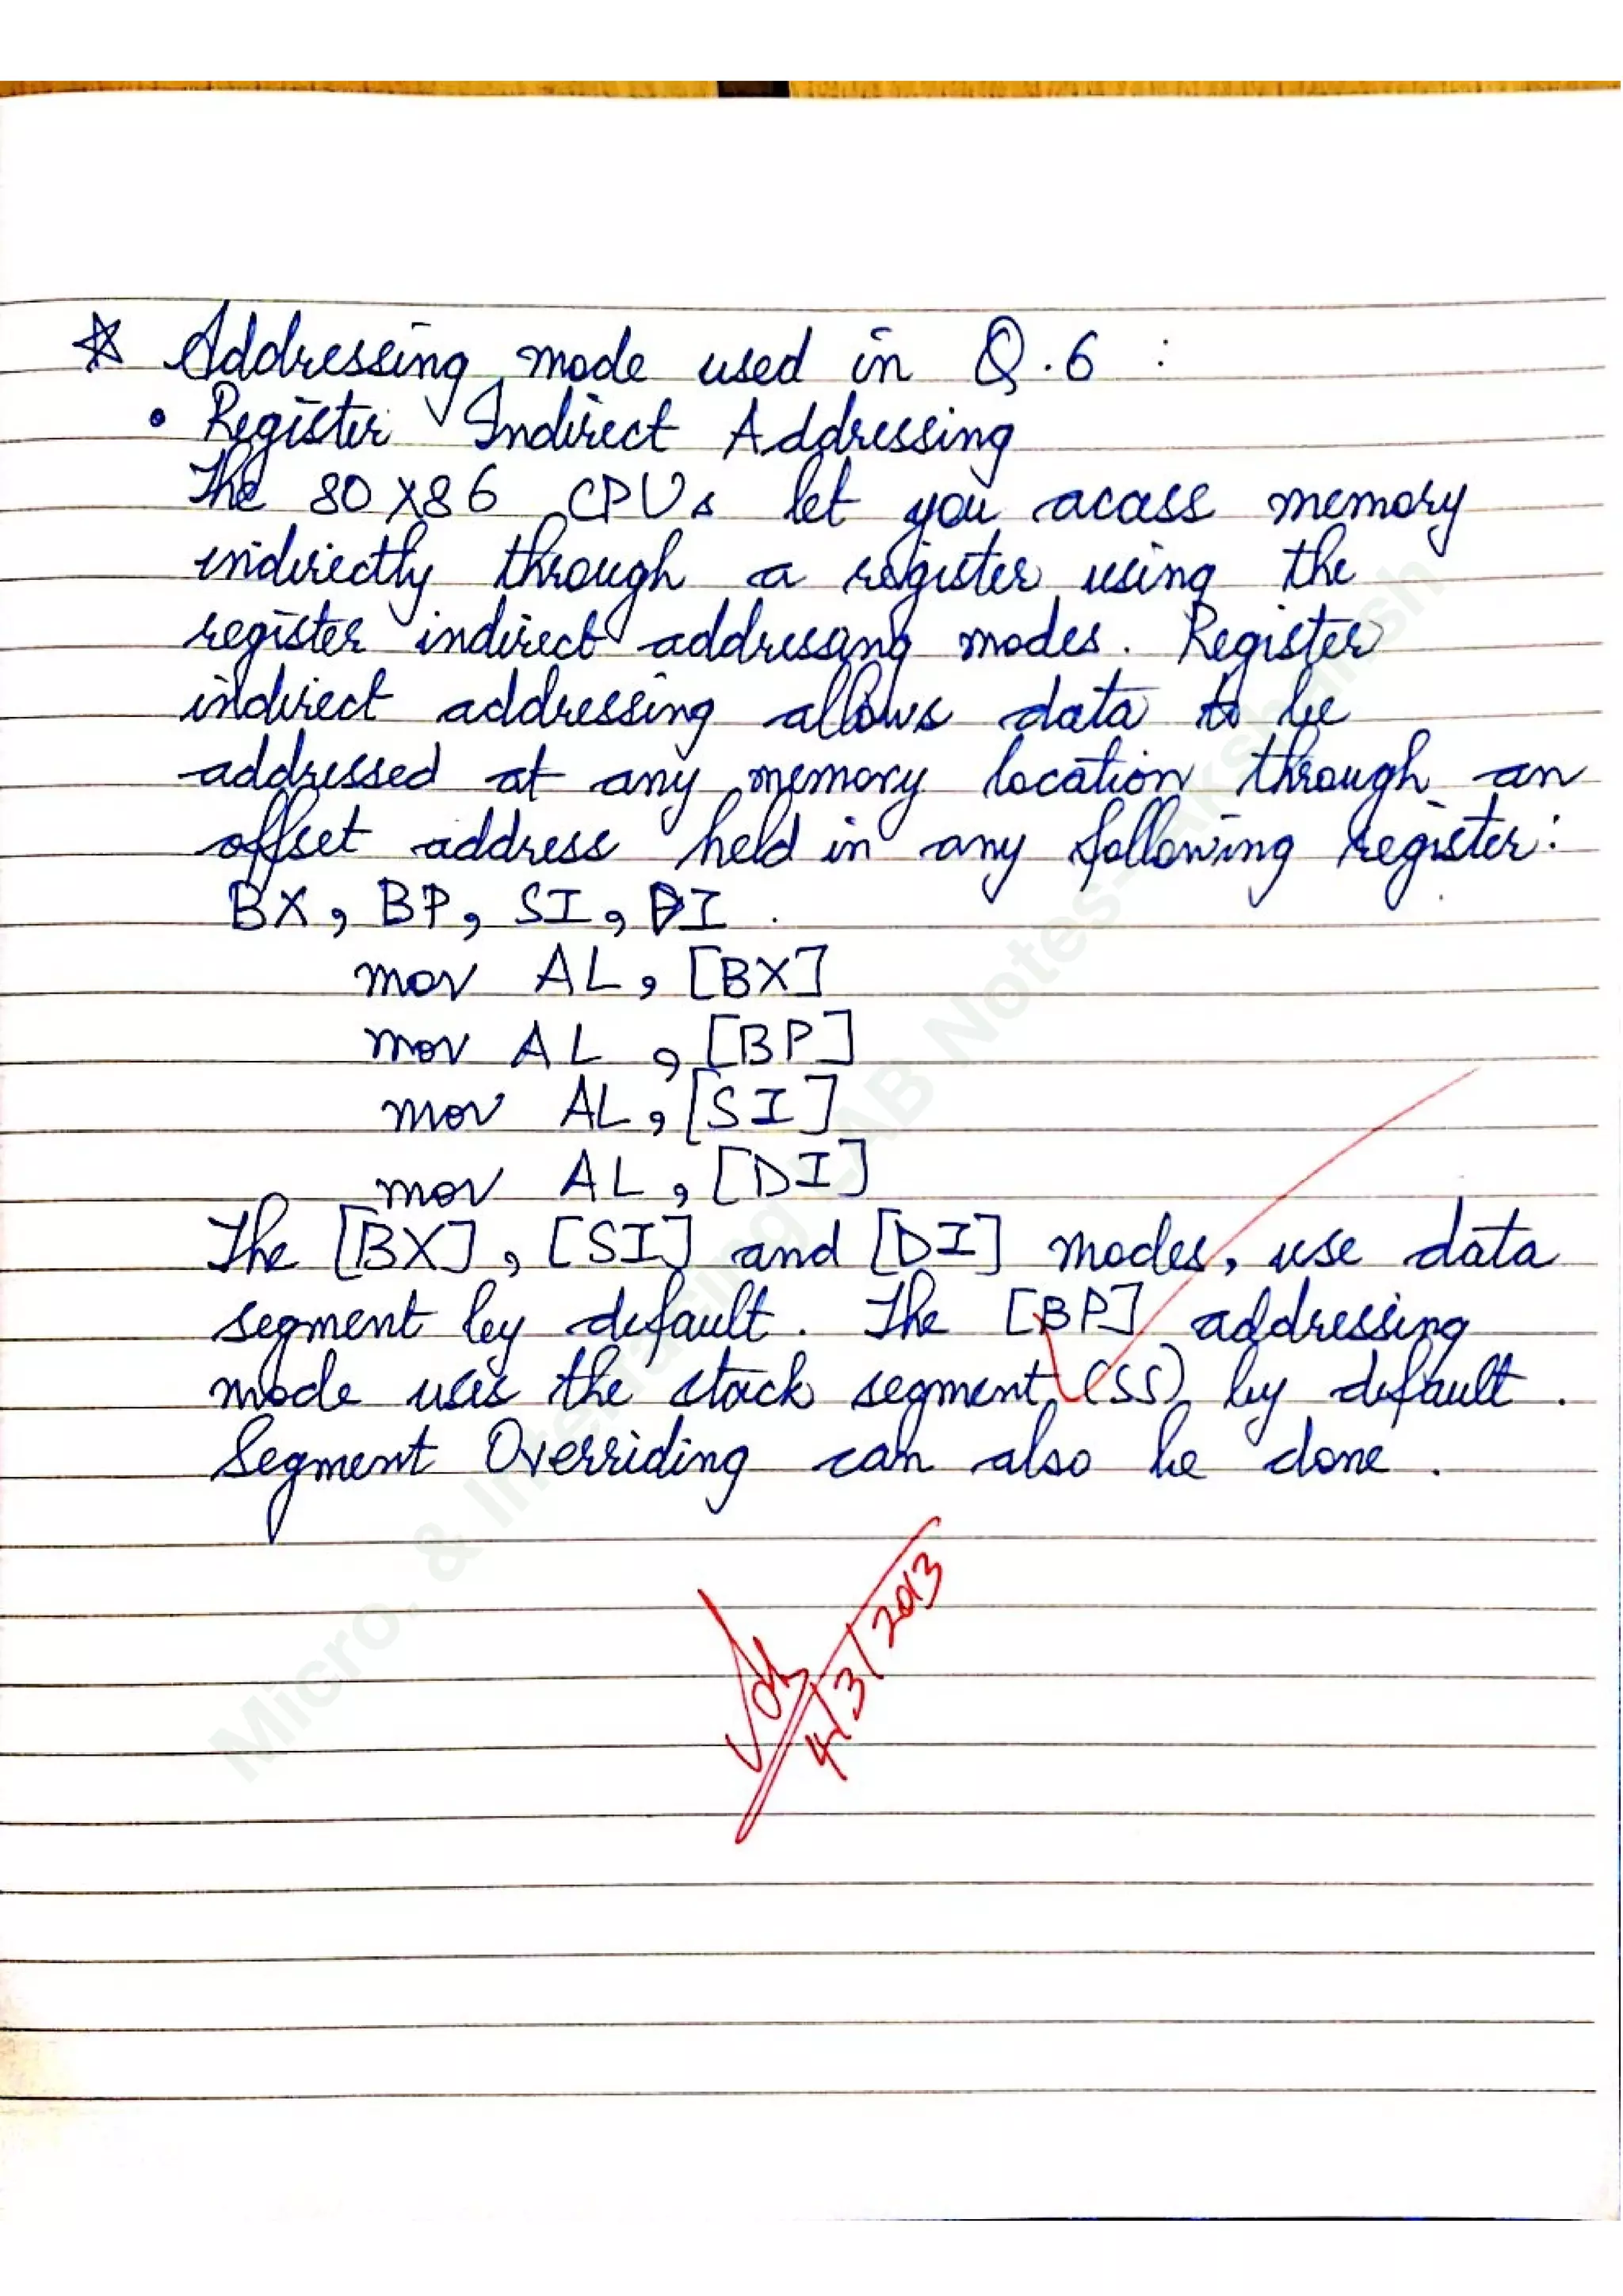 ☆ Addressing mode used in Q.6 :
• Register Indirect Addressing
The 80X86 CPUs let you acass memory
indirectly through a register using the
register indirect addressing modes. Register
indirect addressing allows data to be
addressed at any memory location through an
offset address held in any following register:
BX, BP, SI, DI .
mov AL, [BX]
mov AL , [BP]
mov AL, [SI]
mov AL, [DI]
The [BX], [SI] and [DI] modes, use data
segment by default. The [BP] addressing
mode uses the stack segment (SS) by default.
Segment Overriding can also be done.
4/3/2013
Micro. & Interfacing LAB Notes-Akshansh